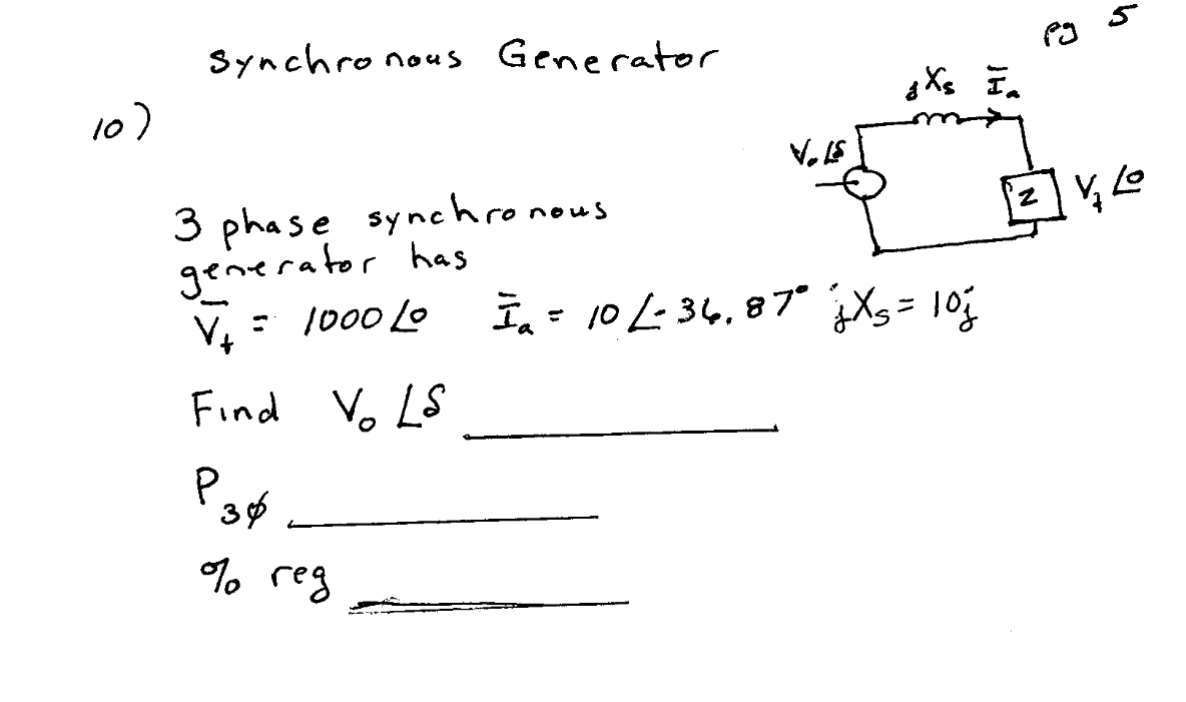 pg 5
Synchronous Generator
10)
jXs Īa
V₀∠δ
Z
Vt∠0
3 phase synchronous
generator has
V̄t = 1000∠0 Īa = 10∠-36.87° jXs = 10j
Find V₀∠δ
P3ϕ
% reg